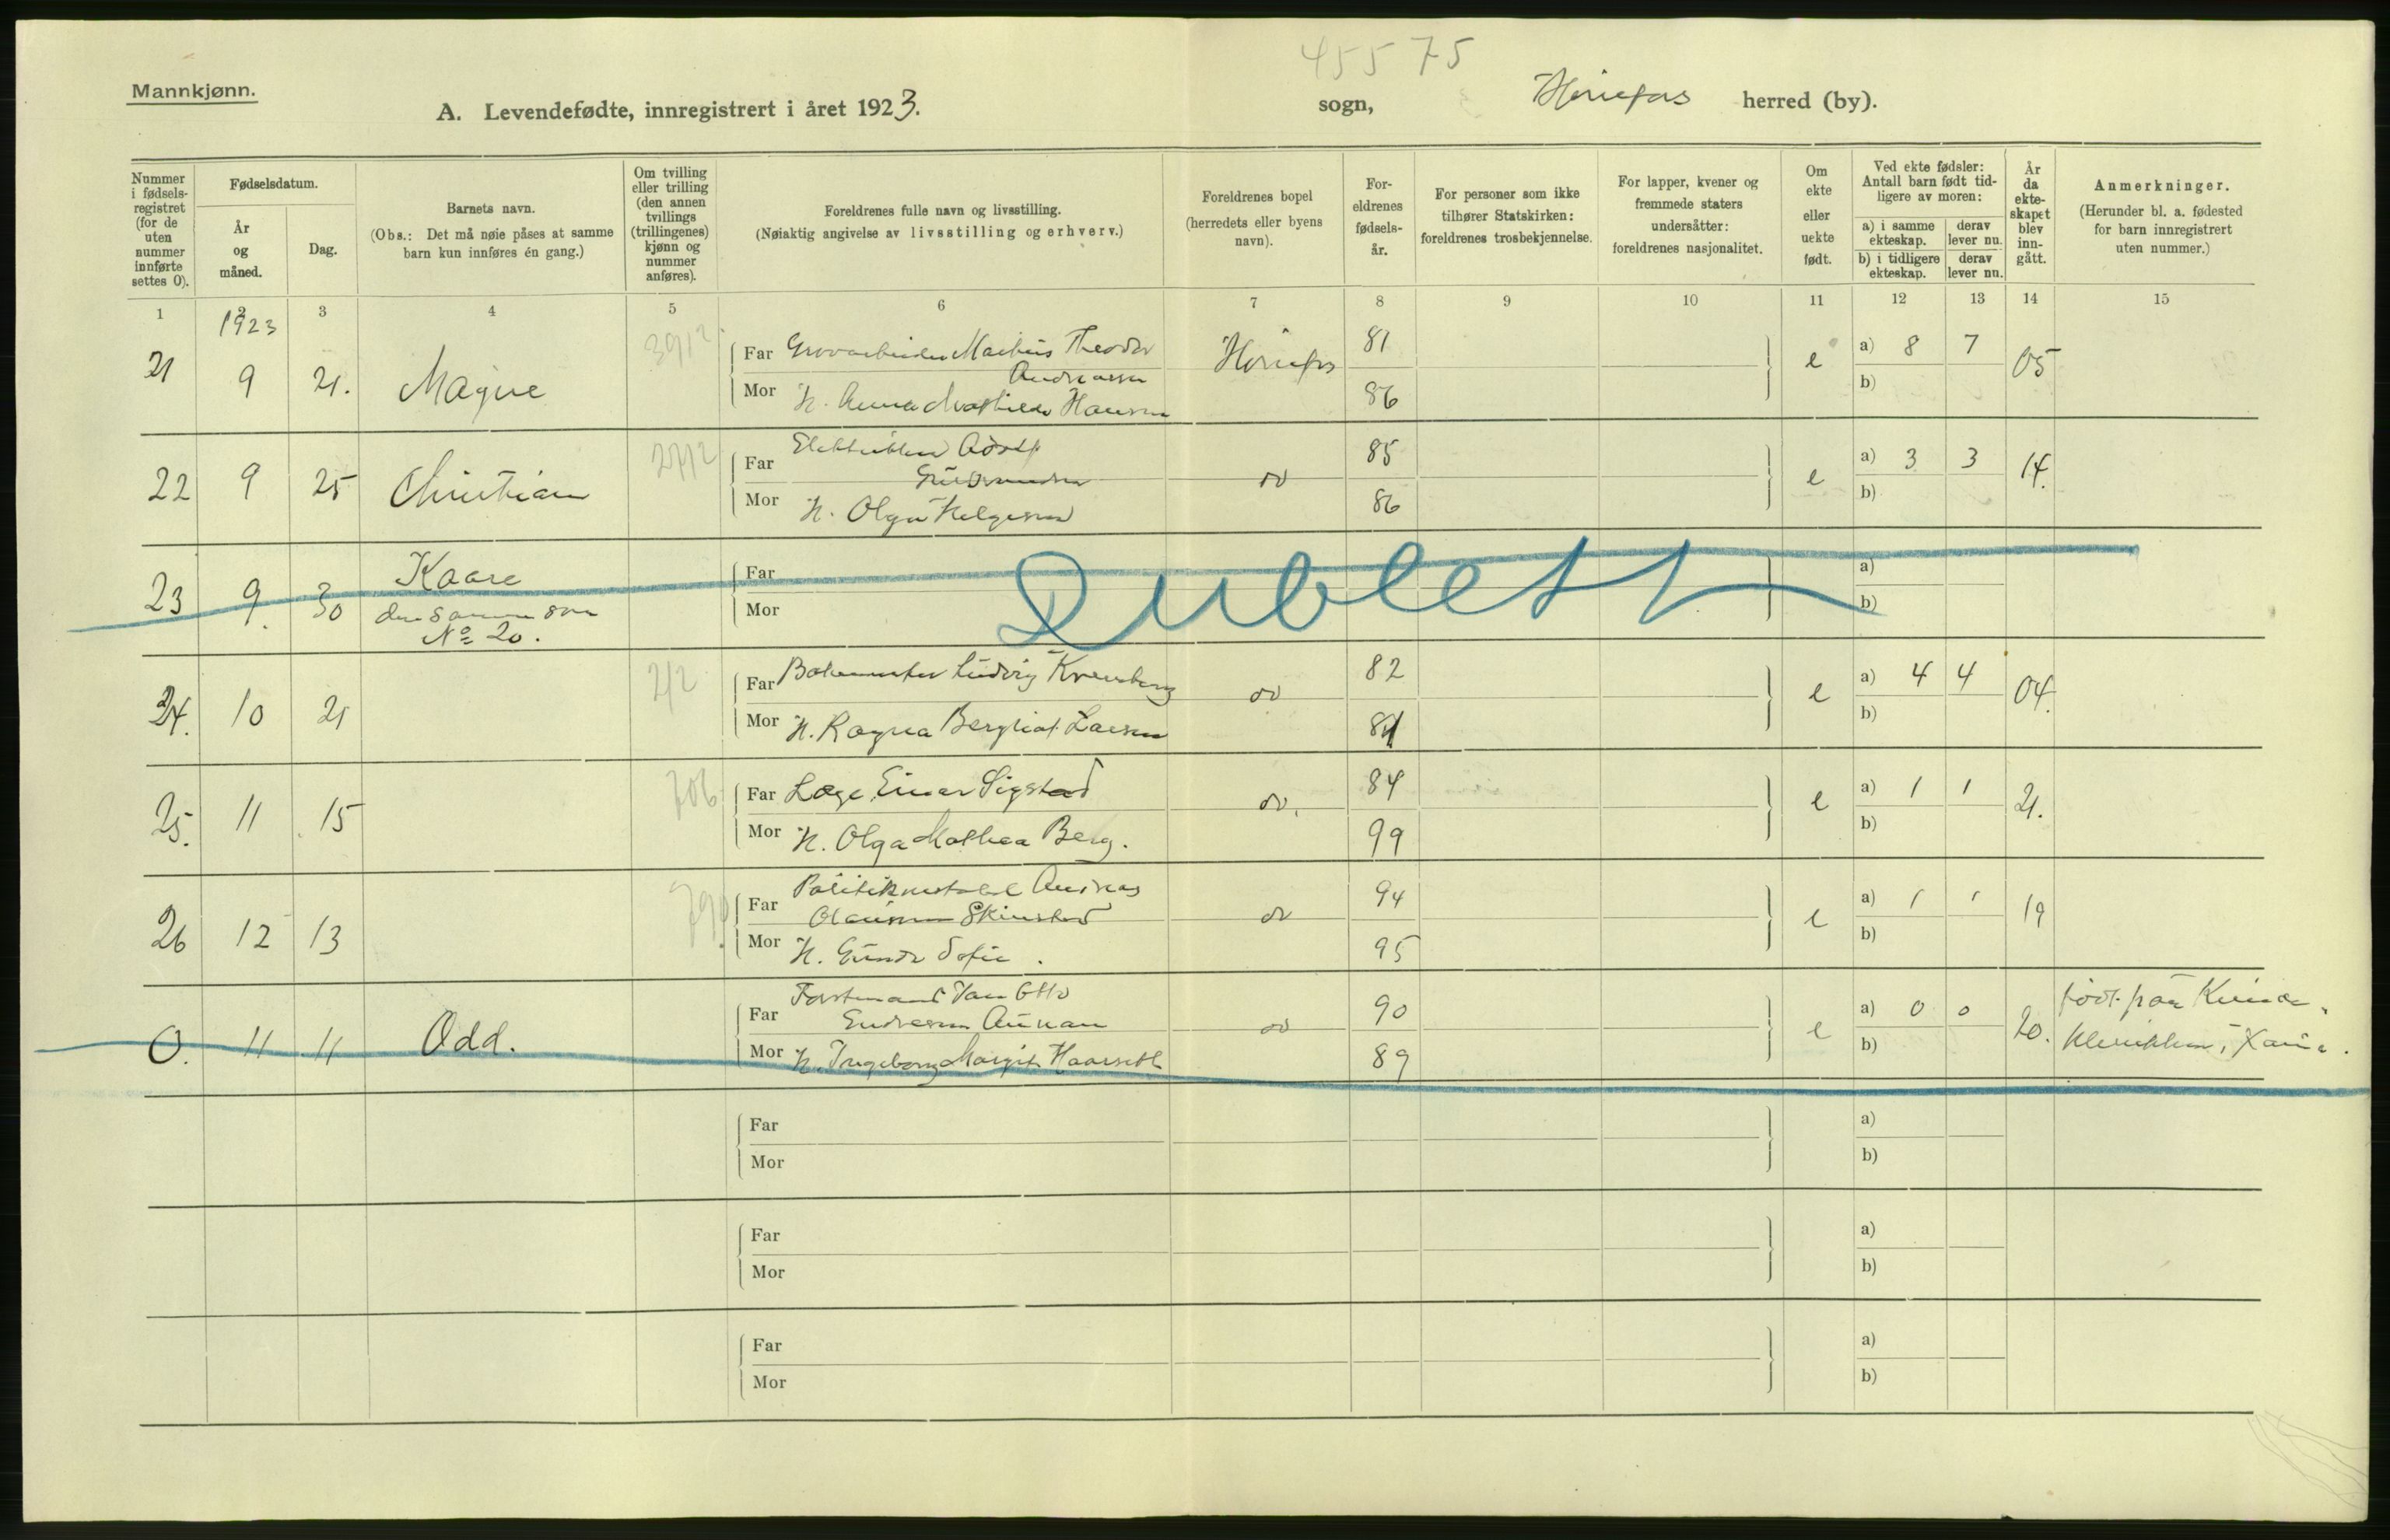 45575
Mannkjønn.
A. Levendefødte, innregistrert i året 1923.
sogn, Hønefos herred (by).
Nummer i fødsels-registret (for de uten nummer innførte settes 0).
Fødselsdatum.
År og måned.
Dag.
Barnets navn.
(Obs.: Det må nøie påses at samme barn kun innføres én gang.)
Om tvilling eller trilling (den annen tvillings (trillingenes) kjønn og nummer anføres).
Foreldrenes fulle navn og livsstilling.
(Nøiaktig angivelse av livsstilling og erhverv.)
Foreldrenes bopel (herredets eller byens navn).
For-eldrenes fødsels-år.
For personer som ikke tilhører Statskirken: foreldrenes trosbekjennelse.
For lapper, kvener og fremmede staters undersåtter: foreldrenes nasjonalitet.
Om ekte eller uekte født.
Ved ekte fødsler: Antall barn født tid-ligere av moren:
a) i samme ekteskap. derav lever nu.
b) i tidligere ekteskap. derav lever nu.
År da ekte-skapet blev inn-gått.
Anmerkninger.
(Herunder bl. a. fødested for barn innregistrert uten nummer.)
1 2 3 4 5 6 7 8 9 10 11 12 13 14 15
1923
21 9 21. Magne
Far Theodor Hønefos 81 e a) 8 7 05
Andreassen
Mor H. Anna Mathilde Hansen 86 b)
22 9 25 Christian
Far Elektriker Adolf do 85 e a) 3 3 14.
Gudmundsen
Mor H. Olga Helgesen 86 b)
23 9. 30 Kaare
den samme som
No 20.
Far
Mor
Dublett
a)
b)
24. 10 21
2/2
Far Ludvig do 82 e a) 4 4 04.
Mor H. Ragna Bergliot Larsen 84 b)
25. 11 15
706
Far Læge Einar Sigstad do. 84 e a) 1 1 21.
Mor H. Olga Mathea Berg. 99 b)
26 12 13
Far Politikonstabel Andreas do 94 e a) 1 1 19
Olausen Skinstad
Mor H. Gunda Sofie. 95 b)
0. 11 11 Odd.
Far Forstmand Jan Otto do 90 e a) 0 0 20. født paa Kvinde-
Endresen Aunan
Mor H. Ingeborg Margit Haarseth 89 b) klinikken, Xania.
Far
Mor
a)
b)
Far
Mor
a)
b)
Far
Mor
a)
b)